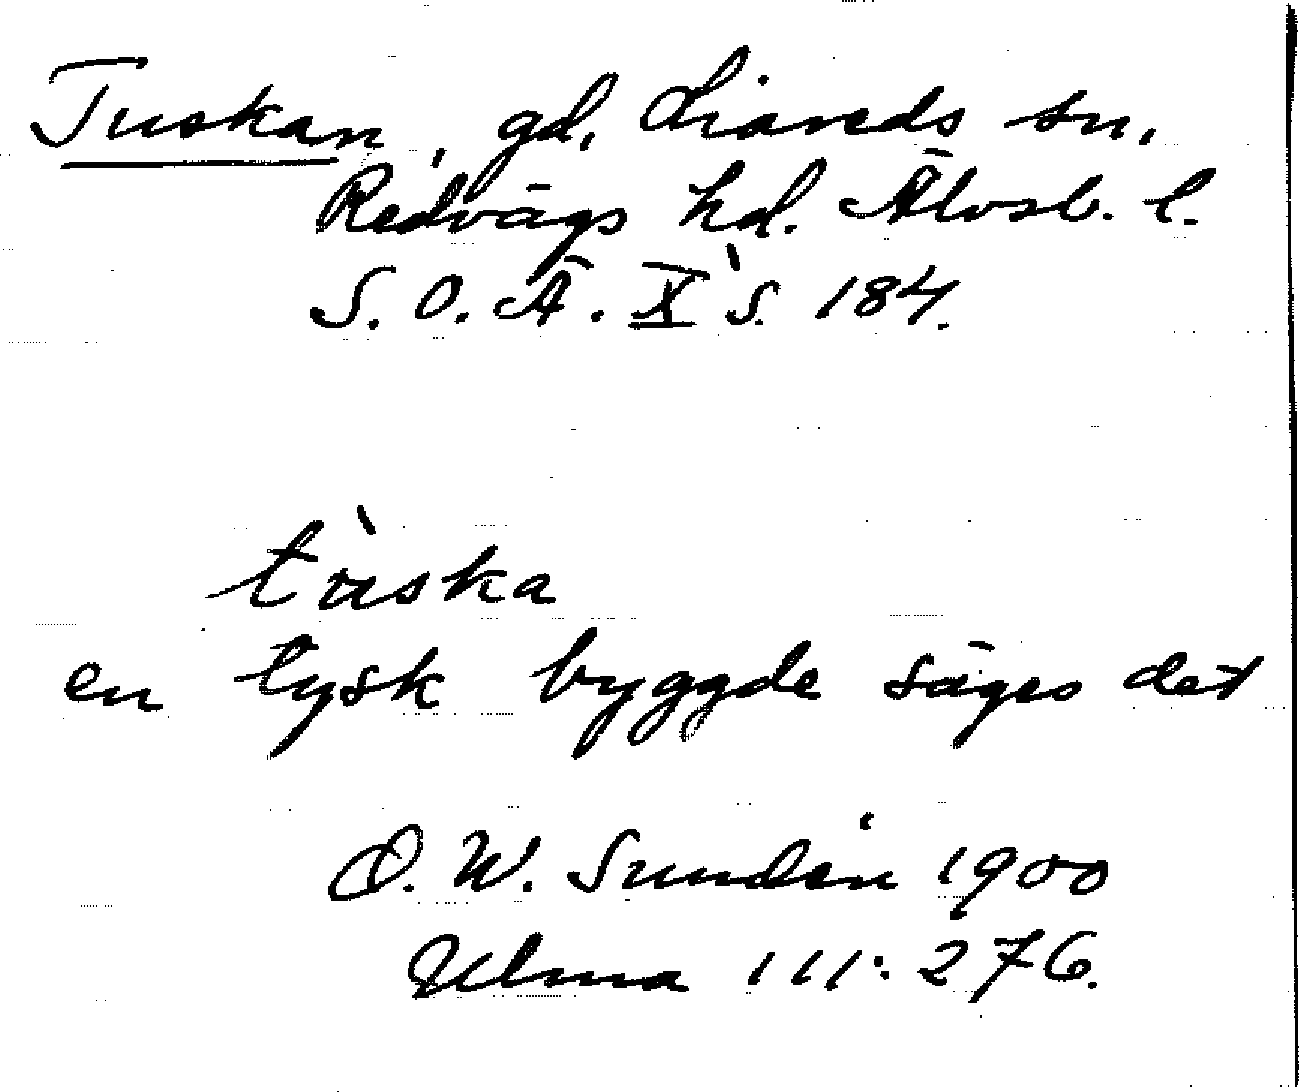 Tuskan, gd, Liareds sn,
Redvägs hd. Älvsb. l.
S. O. Ä. X s. 184.
tùska
en tysk byggde säges det
D. W. Sundén 1900
Ulma 111:276.